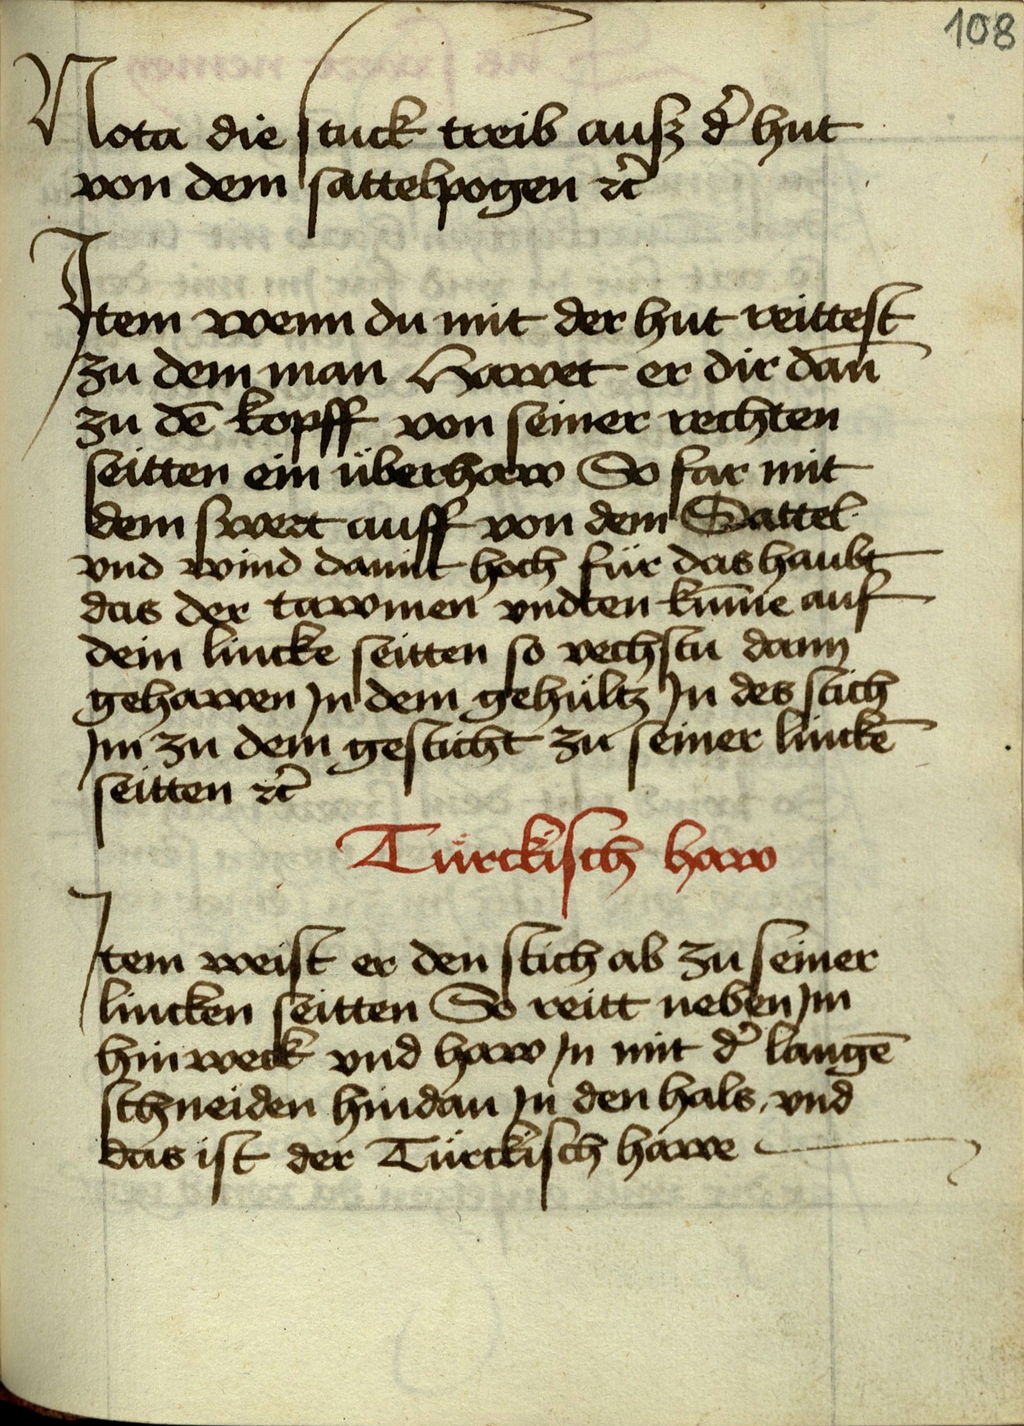 108
Nota die stuck treib ausz d' hut
von dem sattelpogen rc̃
Item wenn du mit der hut reittest
zu dem man Hawet er dir dan̄
zu dē kopff von seiner rechten
seitten ein überhaw So far mit
dem swert auff von dem Sattel
vnd wind damit hoch für das haubt
das der tawmen vndten kum̄e auf
dein lincke seitten so vechstu dann
gehawen Jn dem gehultz Jn des stich
Jm zu dem gesticht zu seiner linckē
seitten rc̃
Türckisch haw
Item weist er den stich ab zu seiner
lincken seitten So reitt neben Jm
hin weck vnd haw Jn mit d' langē
schneiden hindan Jn den hals vnd
das ist der Türckisch hawe